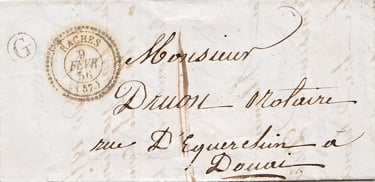 G
RACHES
9
FÉVR
56
(57)
Monsieur
Druon Notaire
rue D'Equerchin à
Douai